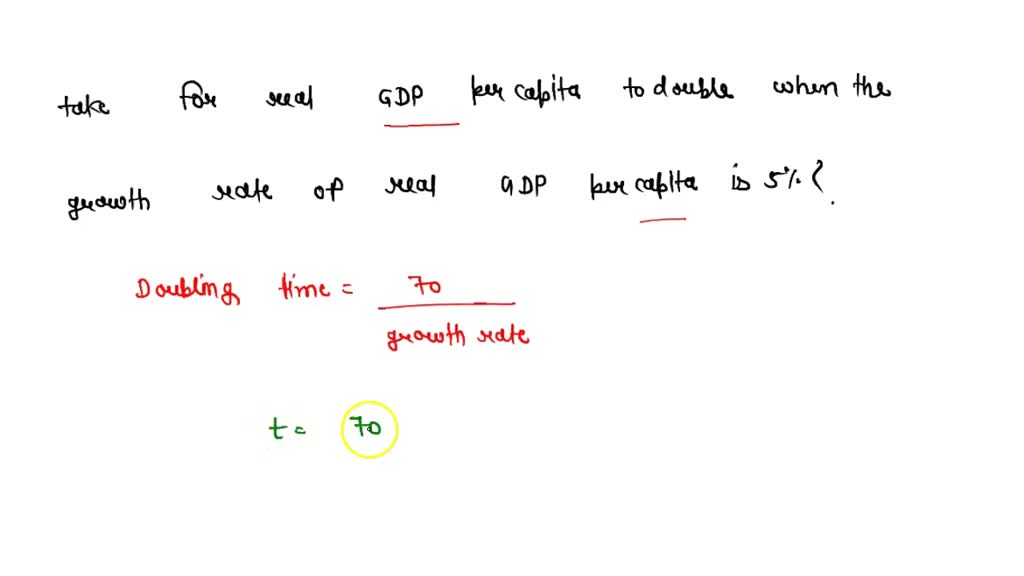 take for real GDP per capita to double when the
growth rate of real GDP per capita is 5% ?
Doubling time = 70
growth rate
t = 70